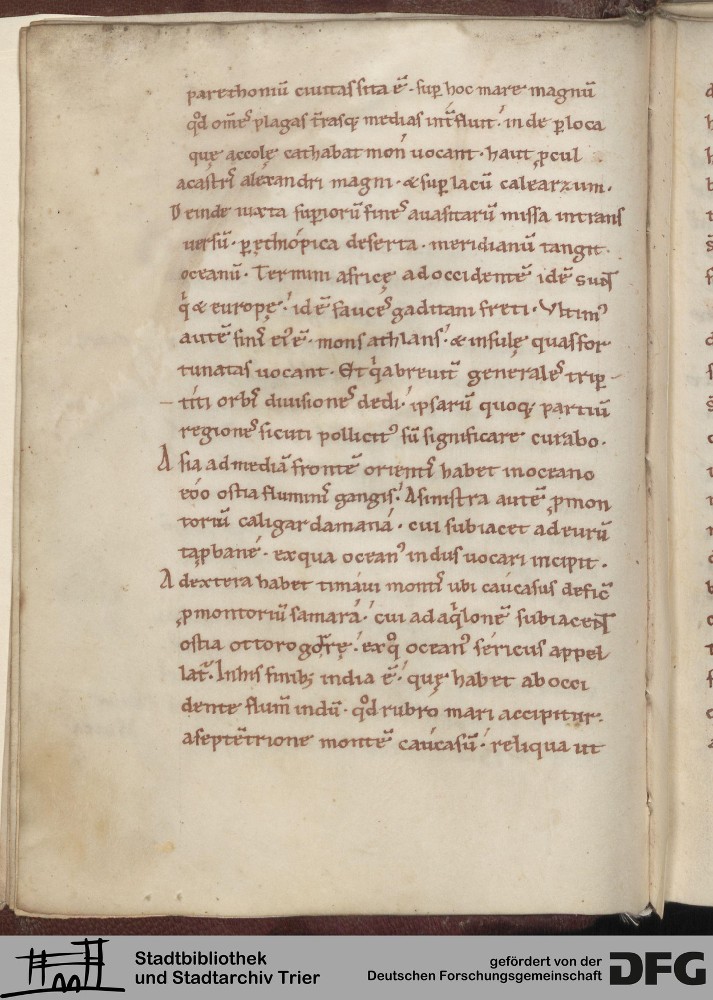 parethoniū ciuitas sita ē̄ · sup̱ hoc mare magnū
qd̊ om̄es plagas t̄rasq; medias int̄fluit · inde p̱ loca
quę accolę cathabatmon uocant · haut ꝓcul
a castris alexandri magni · & sup̱ lacū calearzum ·
Deinde iuxta sup̱iorū fines auasitarū missa in trans
uersū · p̱ ęthiópica deserta · meridianū tangit ·
oceanū · Termini africę ad occidentē idē sunt
qͥ & europę · id ē̄ fauces gaditani freti · Vltimꝰ
autē finis eiꝰ ē̄ · mons athlans · & insulę quas for
tunatas uocant · Et qͥa breuit̄ generales trip̱
titi orbis diuisiones dedi · ipsarū quoq; partiū
regiones sicuti pollicitꝰ sū significare curabo ·
Asia ad mediā frontē orientis habet in oceano
eóo ostia fluminis gangis · A sinistra autē ꝓmon
toriū caligardamaná · cui subiacet ad eurū
tap̱bané · ex qua oceanꝰ indus uocari incipit ·
A dextera habet timáui montis ubi caúcasus defic̄
ꝓmontoriū samará · cui ad aqͥlonē subiacent
ostia ottorogorrę · ex qͦ oceanꝰ séricus appel
lat̄ · In his finib; india ē̄ · quę habet ab occi
dente flum̄ indū · qd̊ rubró mari accipitur ·
a septētrione montē caúcasū · reliqua ut
Stadtbibliothek
und Stadtarchiv Trier
gefördert von der
Deutschen Forschungsgemeinschaft
DFG